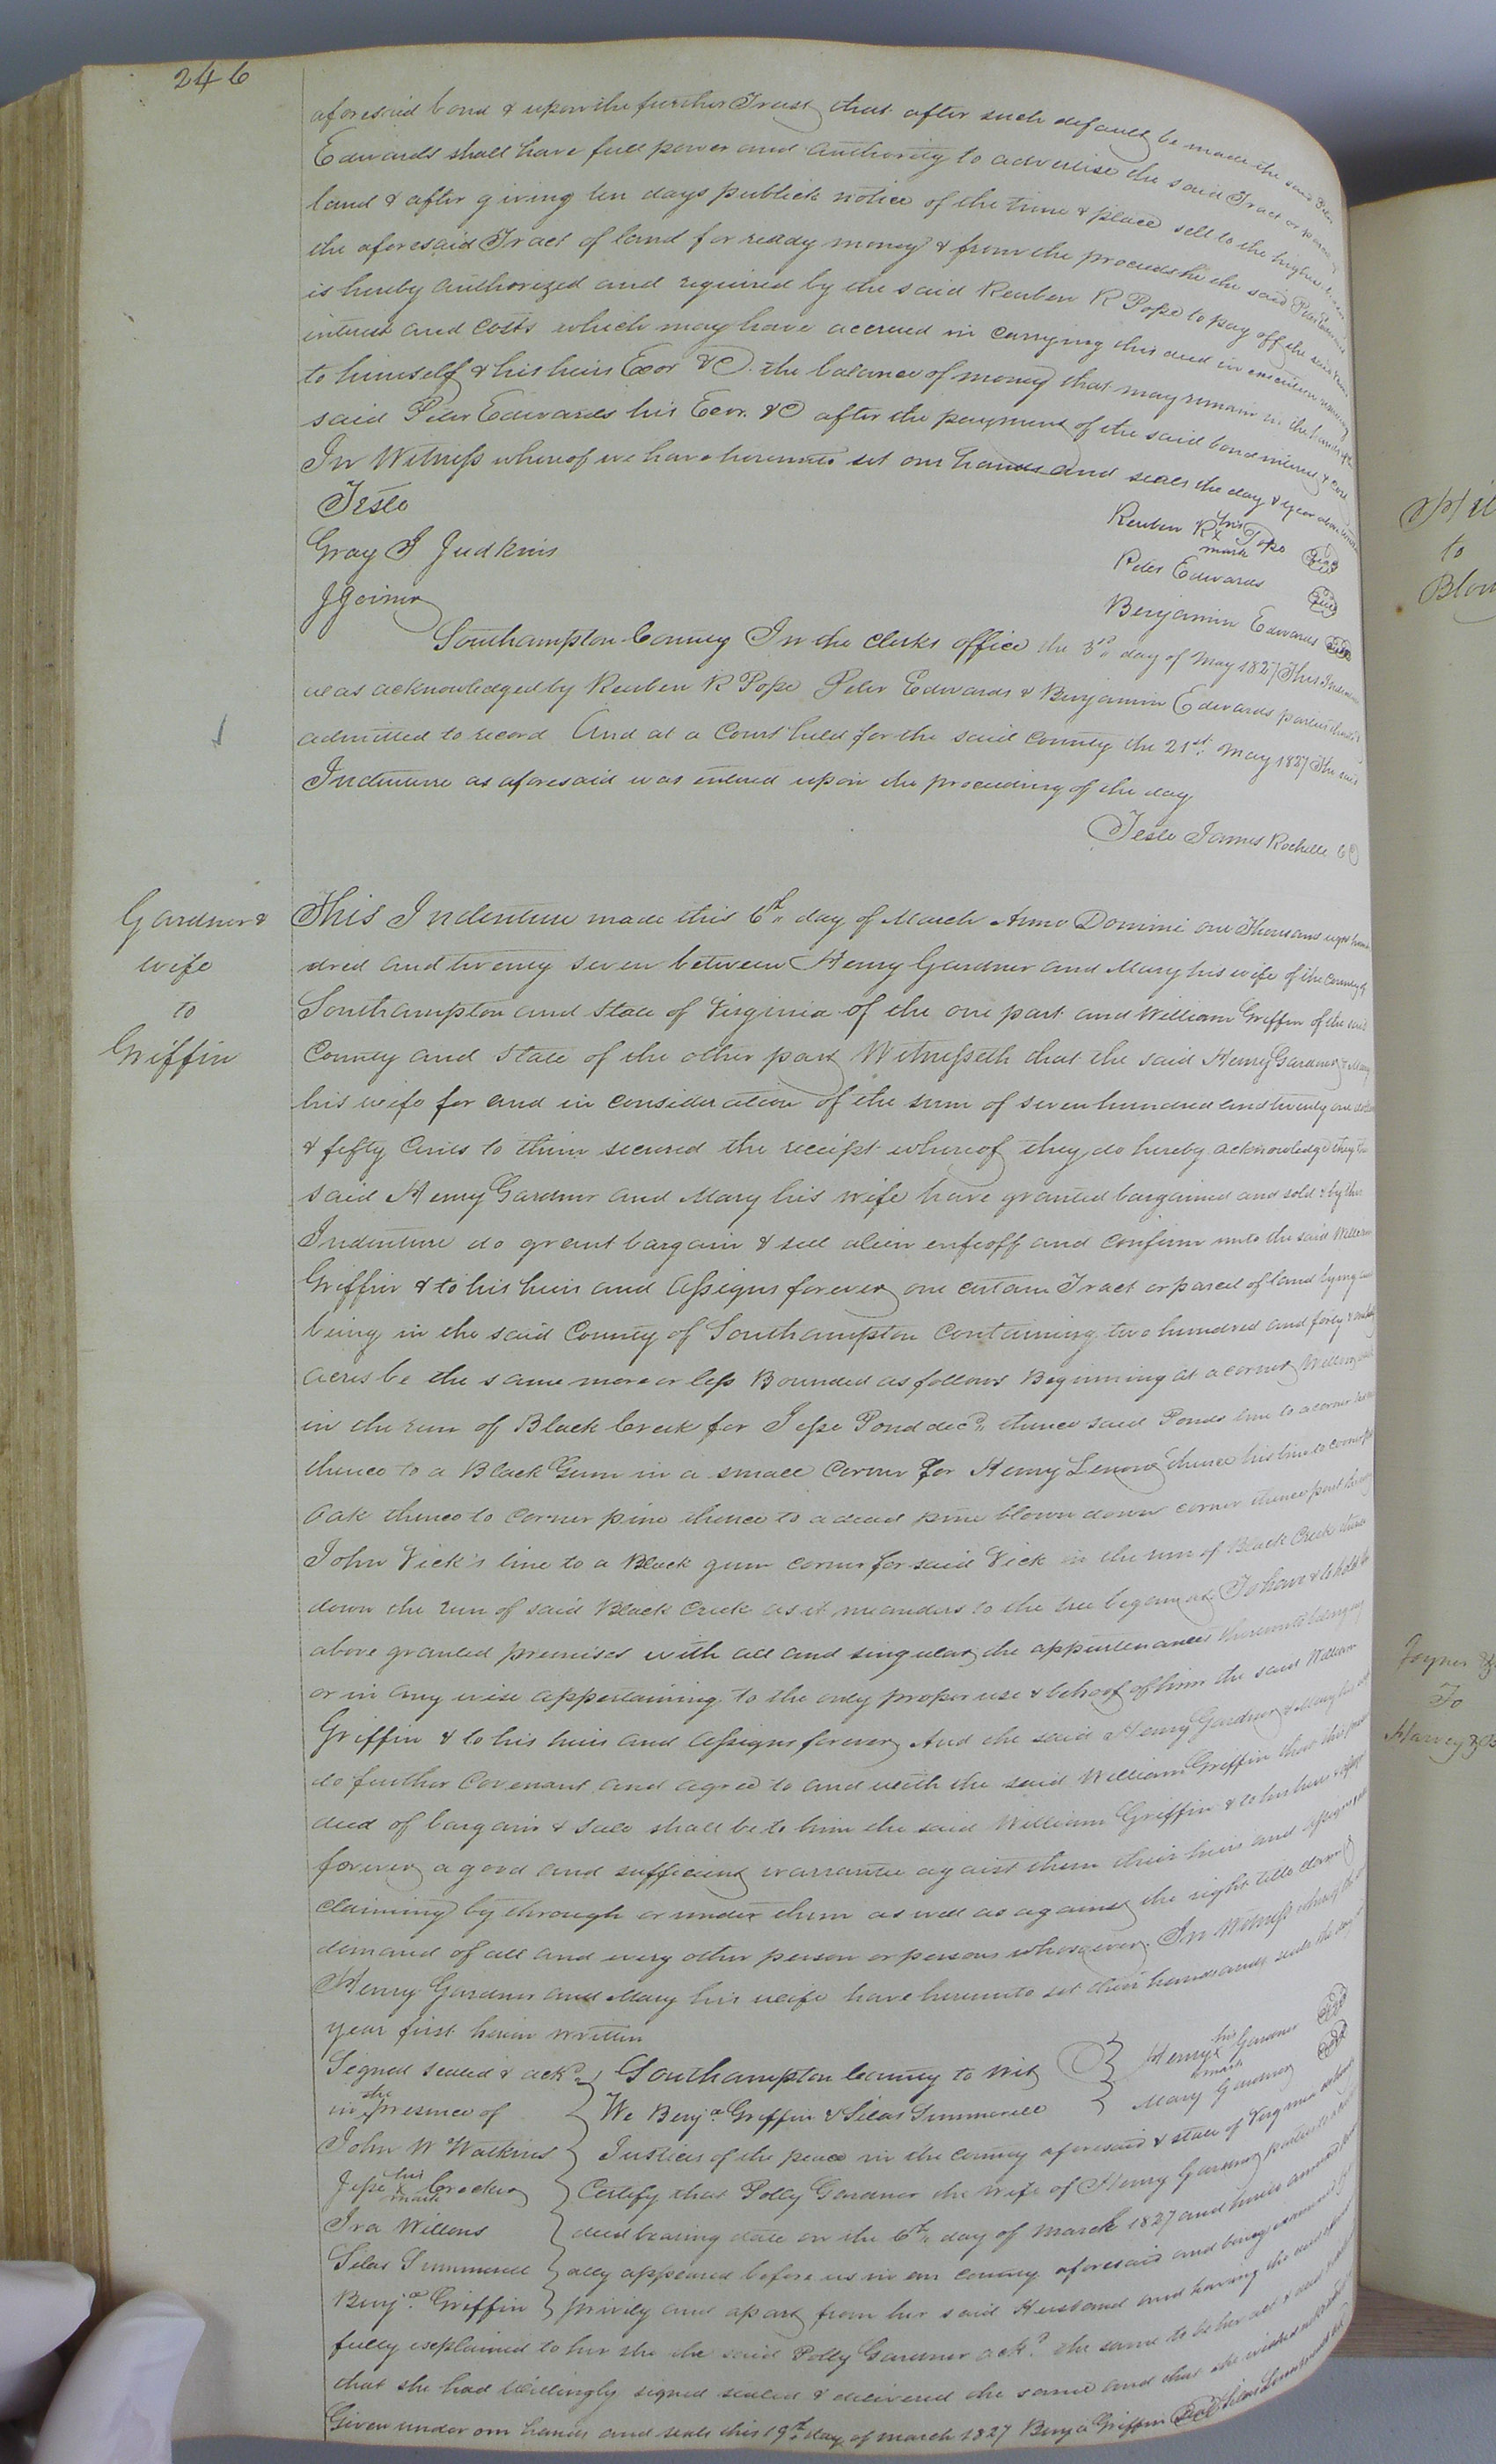 246
aforesaid bond & upon the further Trust that after such default be made the said Peter
Edwards shall have full power and authority to advertise the said Tract or parcel of
land & after giving ten days publick notice of the time & place sell to the highest bidder
the aforesaid Tract of land for ready money & from the proceeds he the said Peter Edwards
is hereby authorized and required by the said Reuben R Pope to pay off the said bond
interest and costs which may have accrued in carrying this deed in execution
to himself & his heirs Exor &C. the balance of money that may remain in the hands of the
said Peter Edwards his Exor. &C after the payment of the said bond interest & cost
In Witness whereof we have hereunto set our hands and seals the day & year above written
Teste
Gray J Judkins
J Joiner
Reuben R his x mark Pope Seal
Peter Edwards Seal
Benjamin Edwards Seal
Southampton County In the Clerks office the 3rd day of May 1827 This Indenture
was acknowledged by Reuben R Pope Peter Edwards & Benjamin Edwards parties thereto &
admitted to record And at a Court held for the said County the 21st. May 1827 The said
Indenture as aforesaid was entered upon the proceeding of the day
Teste James Rochelle CC
Gardner &
wife
to
Griffin
This Indenture made this 6th day of March Anno Domini one Thousand eight hun
dred and twenty seven between Henry Gardner and Mary his wife of the County of
Southampton and State of Virginia of the one part and William Griffin of the said
County and State of the other part Witnesseth that the said Henry Gardner & Mary
his wife for and in consideration of the sum of seven hundred and twenty one dollars
& fifty Cents to them secured the receipt whereof they do hereby acknowledge they the
said Henry Gardner and Mary his wife have granted bargained and sold & by this
Indenture do grant bargain & sell alien enfeoff and confirm unto the said William
Griffin & to his heirs and assigns forever one certain Tract or parcel of land lying and
being in the said County of Southampton Containing two hundred and forty &
acres be the same more or less Bounded as follows Beginning at a corner
in the run of Black Creek for Jesse Pond decd. thence said Ponds line to a corner
thence to a Black Gum in a small Corner for Henry Lenow thence his line to corner
Oak thence to corner pine thence to a dead pine blown down corner thence
John Vick's line to a Black gum corner for said Vick in the run of Black Creek thence
down the run of said Black Creek as it meanders to the tree began at To have & to hold the
above granted premises with all and singular the appurtenances thereunto belonging
or in any wise appertaining to the only proper use & behoof of him the said William
Griffin & to his heirs and assigns forever And the said Henry Gardner & Mary his wife
do further Covenant and agree to and with the said William Griffin that this
deed of bargain & sale shall be to him the said William Griffin & to his heirs & assigns
forever a good and sufficient warrantie against them their heirs and assigns
claiming by through or under them as well as against the right title claim &
demand of all and every other person or persons whosoever. In Witness whereof the
Henry Gardner and Mary his wife have hereunto set their hands and seals the day &
year first herein written
Signed sealed & ackd
in the presence of
John W Watkins
Jesse his x mark Crocker
Ira Willons
Silas Summerell
Benja. Griffin
Henry his x mark Gardner Seal
Mary Gardner Seal
Southampton County to wit
We Benja Griffin & Silas Summerell
Justices of the peace in the County aforesaid & state of Virginia do hereby
Certify that Polly Gardner the wife of Henry Gardner parties to a
deed bearing date on the 6th day of March 1827 and hereto annexed
ally appeared before us in our County aforesaid and being examined by us
privily and apart from her said Husband and having the deed aforesaid
fully explained to her she the said Polly Gardner ackd. the same to be her act & deed &
that she had Willingly signed sealed & delivered the same and that she wished not to retract it
Given under our hands and seals this 19th day of march 1827 Benja Griffin Seal Silas Summerell Seal
to
Joyner &
To